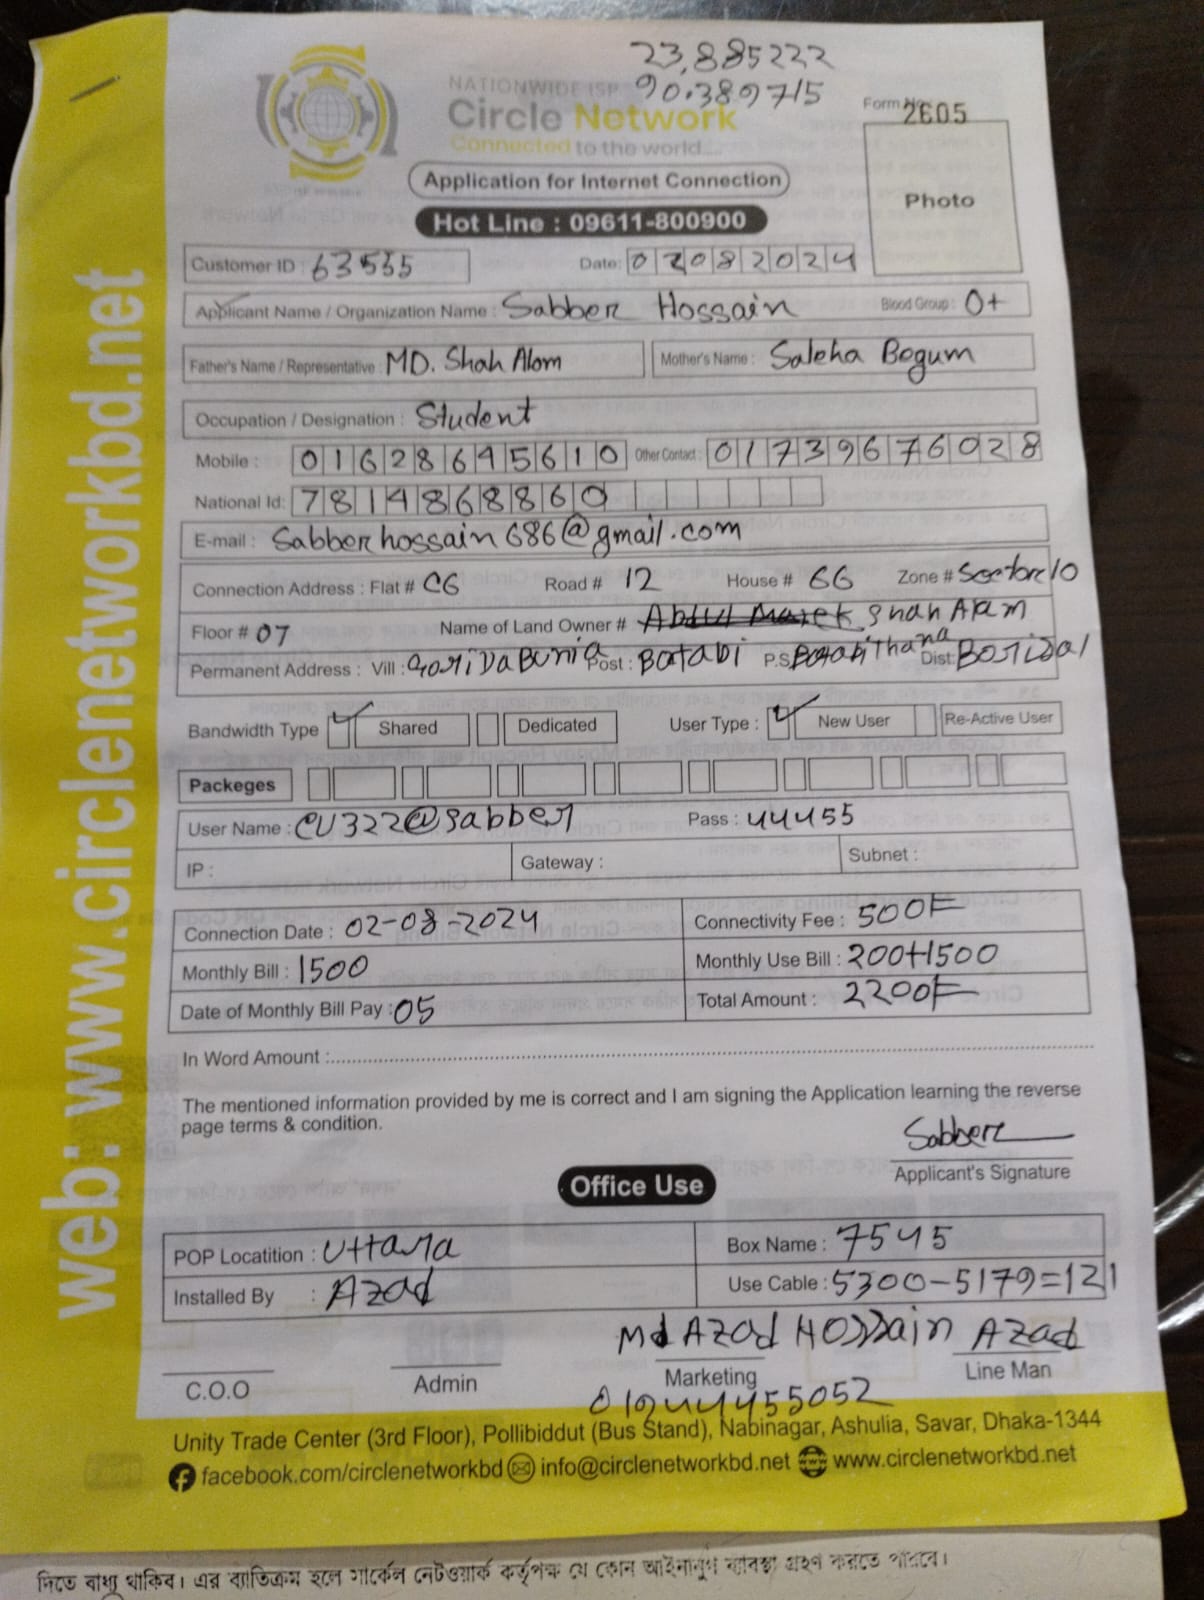 23.885222
90.389715
NATIONWIDE ISP
Circle Network
Connected to the world....
Form No. 2605
Photo
Application for Internet Connection
Hot Line : 09611-800900
Customer ID : 63555 Date: 02082024
Applicant Name / Organization Name : Sabber Hossain Blood Group : O+
Father's Name / Representative : MD. Shah Alom Mother's Name : Saleha Begum
Occupation / Designation : Student
Mobile : 01628645610 Other Contact : 01739676028
National Id: 7814868860
E-mail : Sabberhossain686@gmail.com
Connection Address : Flat # C6 Road # 12 House # 66 Zone # Sector 10
Floor # 07 Name of Land Owner # Shah Alam
Permanent Address : Vill : Post : Batabi P.S Thana Dist: Borisal
Bandwidth Type Shared Dedicated User Type : New User Re-Active User
Packeges
User Name : CU322@sabber Pass : 44455
IP : Gateway : Subnet :
Connection Date : 02-08-2024 Connectivity Fee : 500
Monthly Bill : 1500 Monthly Use Bill : 200+1500
Date of Monthly Bill Pay : 05 Total Amount : 2200
In Word Amount :
The mentioned information provided by me is correct and I am signing the Application learning the reverse
page terms & condition.
Sabber
Applicant's Signature
Office Use
POP Locatition : Uttara Box Name : 7545
Installed By : Azad Use Cable : 5300-5179=121
Md Azad Hossain Azad
C.O.O Admin Marketing Line Man
01944455052
Unity Trade Center (3rd Floor), Pollibiddut (Bus Stand), Nabinagar, Ashulia, Savar, Dhaka-1344
facebook.com/circlenetworkbd info@circlenetworkbd.net www.circlenetworkbd.net
web: www.circlenetworkbd.net
দিতে বাধ্য থাকিব। এর ব্যতিক্রম হলে সার্কেল নেটওয়ার্ক কর্তৃপক্ষ যে কোন আইনানুগ ব্যবস্থা গ্রহণ করতে পারবে।